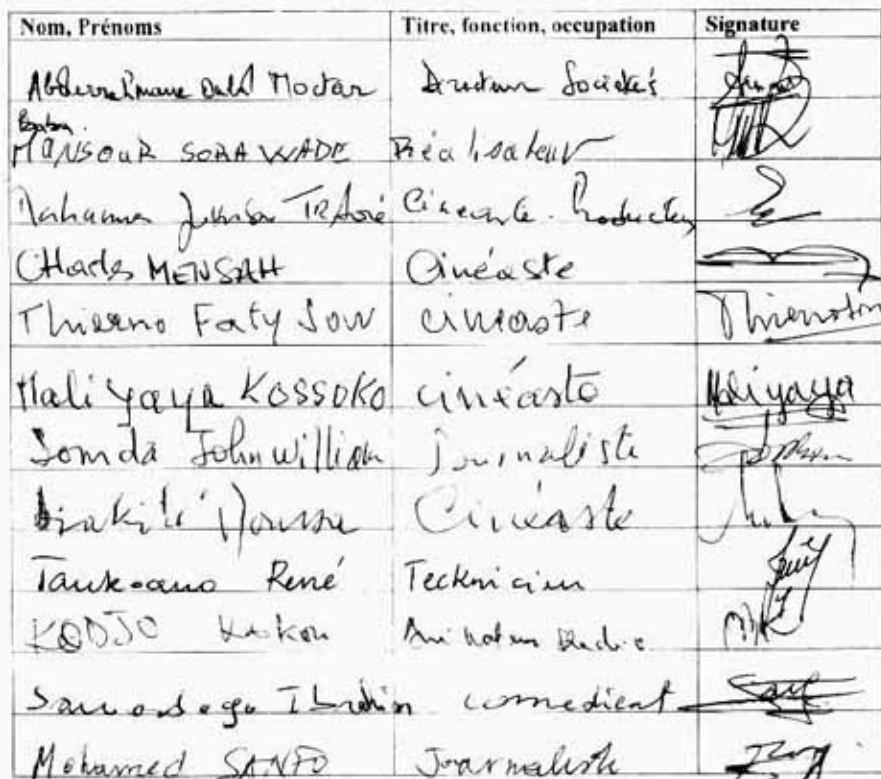 Nom, Prénoms Titre, fonction, occupation Signature
Abderrahmane Ould Moctar Directeur Sociétés
MANSOUR SORA WADE Réalisateur
Mahamar TRAoré Cinéaste. Producteur
CHarles MENSAH Cinéaste
Thierno Faty Sow cineaste Thierno Sow
Mali Yaya KOSSOKO cinéaste Maliyaya
Somda John william journaliste
Diakité Moussa Cinéaste
Tankoano René Technicien
KODJO Animateur Radio
Sawadogo Ibrahim comedient
Mohamed SANFO Journaliste